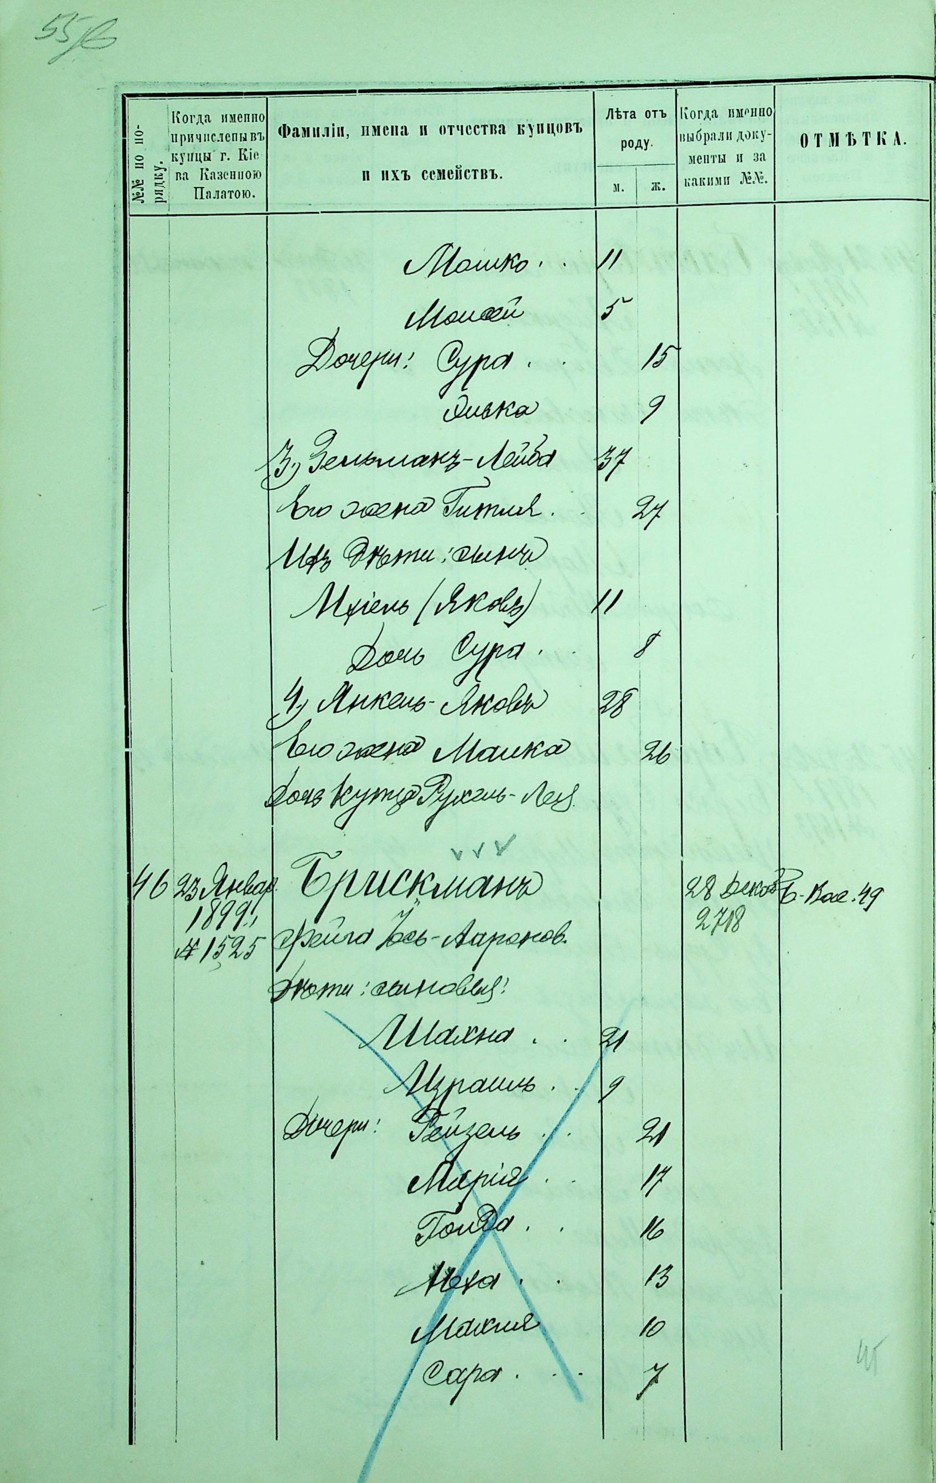 №№ по по-
рядку.
Когда именно
причислены въ
купцы г. Кіе
ва Казенною
Палатою.
Фамиліи, имена и отчества купцовъ
и ихъ семействъ.
Лѣта отъ
роду.
м. ж.
Когда именно
выбрали доку-
менты и за
какими №№.
ОТМѢТКА.
Мошко . . 11
Моисей 5
Дочери: Сура . . . 15
Эльска 9
3, Зельманъ-Лейба 37
Его жена Гитля . . 27
Ихъ дѣти: сынъ
Мхіель (Яковъ) 11
Дочь Сура . . . 8
4, Янкель-Яковъ 28
Его жена Малка 26
Дочь купца Рухель-Лея
46 23 Января Брискманъ 28 Декаб
1899 г. 2718
№ 1525 Фейга Іось-Ааронов.
Дѣти: сыновья:
Шахна . . 21
Израиль . . 9
Дочери: Рейзель . . 21
Марія . . 17
Голда . . 16
Неха . . 13
Махля 10
Сара . . . 7